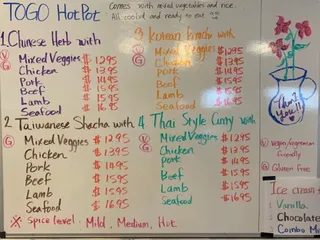 TOGO HotPot
Comes with mixed vegetables and rice.
All cooked and ready to eat
1. Chinese Herb with
V Mixed Veggies $1295
G Chicken $1395
Pork $1495
Beef $1595
Lamb $1595
Seafood $1695
3. Korean Kimchi with
Mixed Veggies $1295
Chicken $1395
Pork $1495
Beef $1595
Lamb $1595
Seafood $1695
2. Taiwanese Shacha with
Mixed Veggies $1295
G Chicken $1395
Pork $1495
Beef $1595
Lamb $1595
Seafood $1695
4 Thai Style Curry with
V Mixed Veggies $1295
G Chicken $1395
Pork $1495
Beef $1595
Lamb $1595
Seafood $1695
※ Spice level: Mild, Medium, Hot
Thank
You!!
V Vegan/vegetarian
friendly
G Gluten free
Ice cream
: Vanilla
: Chocolate
: Combo